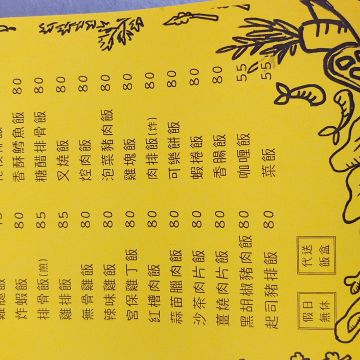 炸蝦飯 80 香酥鱈魚飯 80
排骨飯(煎) 85 糖醋排骨飯 80
雞排飯 85 叉燒飯 80
無骨雞飯 80 焢肉飯 80
辣味雞飯 80 泡菜豬肉飯 80
宮保雞丁飯 80 雞塊飯 80
紅糟肉飯 80 肉排飯(炸) 80
蒜苗臘肉飯 80 可樂餅飯 80
沙茶肉片飯 80 蝦捲飯 80
薑燒肉片飯 80 香腸飯 80
黑胡椒豬肉飯 80 咖喱飯 55
起司豬排飯 80 菜飯 55
假日無休
代送飯盒